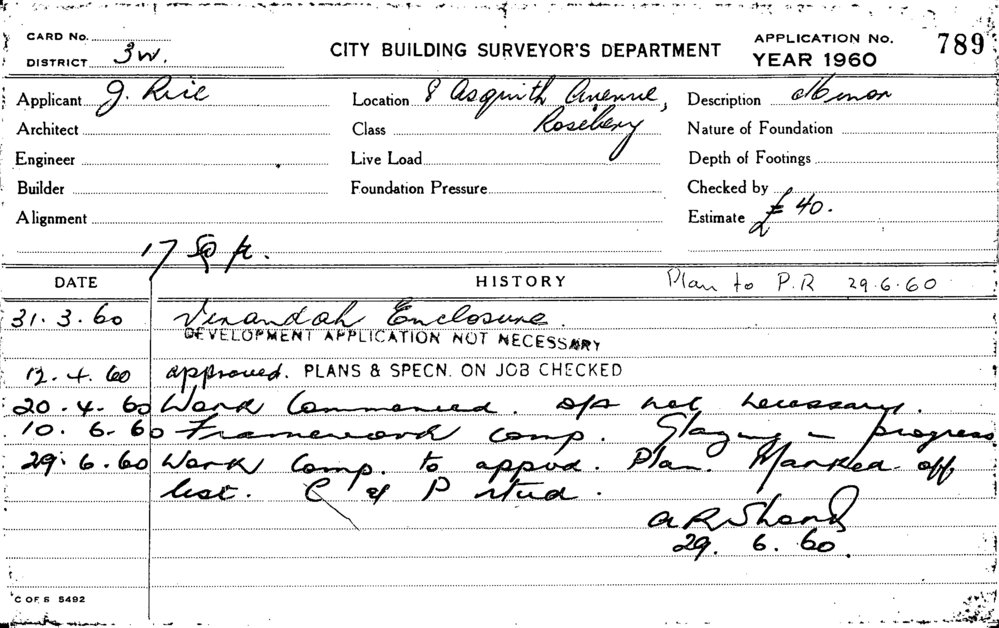 CARD No.
DISTRICT 3W.
CITY BUILDING SURVEYOR'S DEPARTMENT
APPLICATION No. 789
YEAR 1960
Applicant J. Rice
Location 8 Asquith Avenue,
Rosebery
Description Minor
Architect
Class
Nature of Foundation
Engineer
Live Load
Depth of Footings
Builder
Foundation Pressure
Checked by
Alignment
Estimate £40.
17 Sq ft.
DATE HISTORY Plan to P.R 29.6.60
31.3.60 Verandah Enclosure.
DEVELOPMENT APPLICATION NOT NECESSARY
12.4.60 approved. PLANS & SPECN. ON JOB CHECKED
20.4.60 Work Commenced. not necessary.
10.6.60 Framework comp. Glazing in progress
29.6.60 Work comp. to appvd. Plan. Marked off
list. C of P
29.6.60.
C OF S 5492